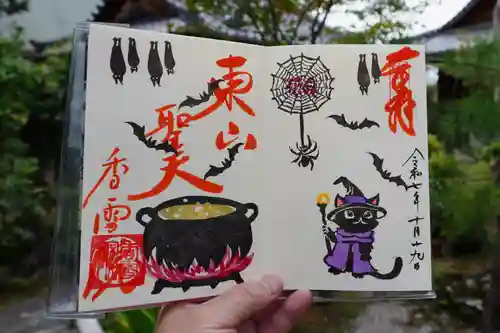 奉拝
令和七年十月十九日
東山
聖天
香雪